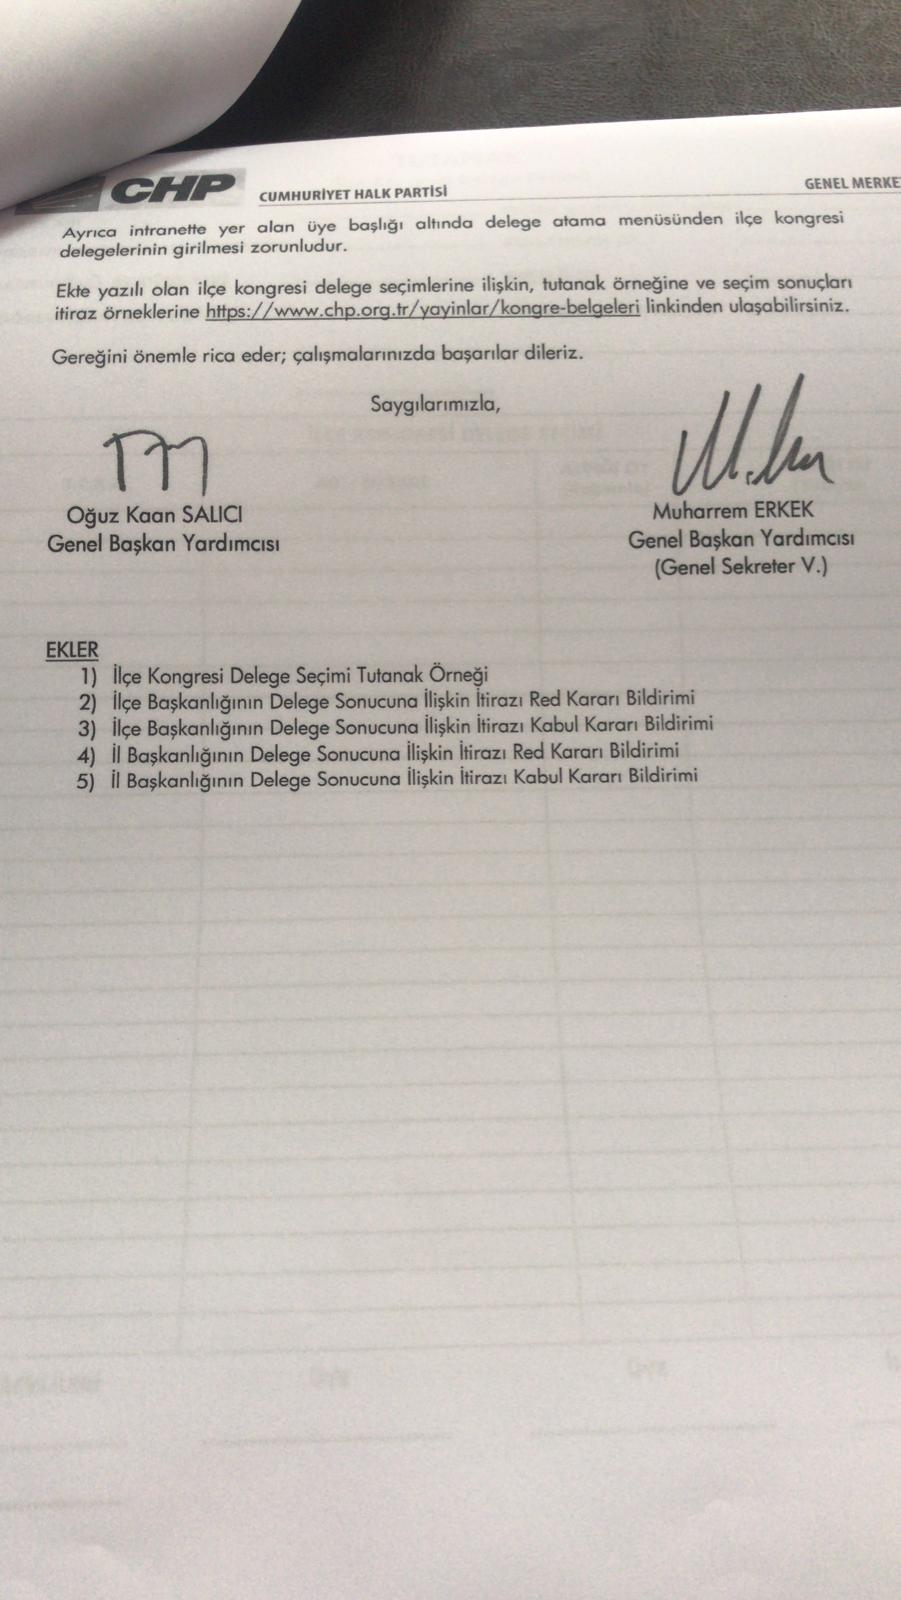 CHP CUMHURİYET HALK PARTİSİ GENEL MERKE
Ayrıca intranette yer alan üye başlığı altında delege atama menüsünden ilçe kongresi
delegelerinin girilmesi zorunludur.
Ekte yazılı olan ilçe kongresi delege seçimlerine ilişkin, tutanak örneğine ve seçim sonuçları
itiraz örneklerine https://www.chp.org.tr/yayinlar/kongre-belgeleri linkinden ulaşabilirsiniz.
Gereğini önemle rica eder; çalışmalarınızda başarılar dileriz.
Saygılarımızla,
Oğuz Kaan SALICI
Genel Başkan Yardımcısı
Muharrem ERKEK
Genel Başkan Yardımcısı
(Genel Sekreter V.)
EKLER
1) İlçe Kongresi Delege Seçimi Tutanak Örneği
2) İlçe Başkanlığının Delege Sonucuna İlişkin İtirazı Red Kararı Bildirimi
3) İlçe Başkanlığının Delege Sonucuna İlişkin İtirazı Kabul Kararı Bildirimi
4) İl Başkanlığının Delege Sonucuna İlişkin İtirazı Red Kararı Bildirimi
5) İl Başkanlığının Delege Sonucuna İlişkin İtirazı Kabul Kararı Bildirimi